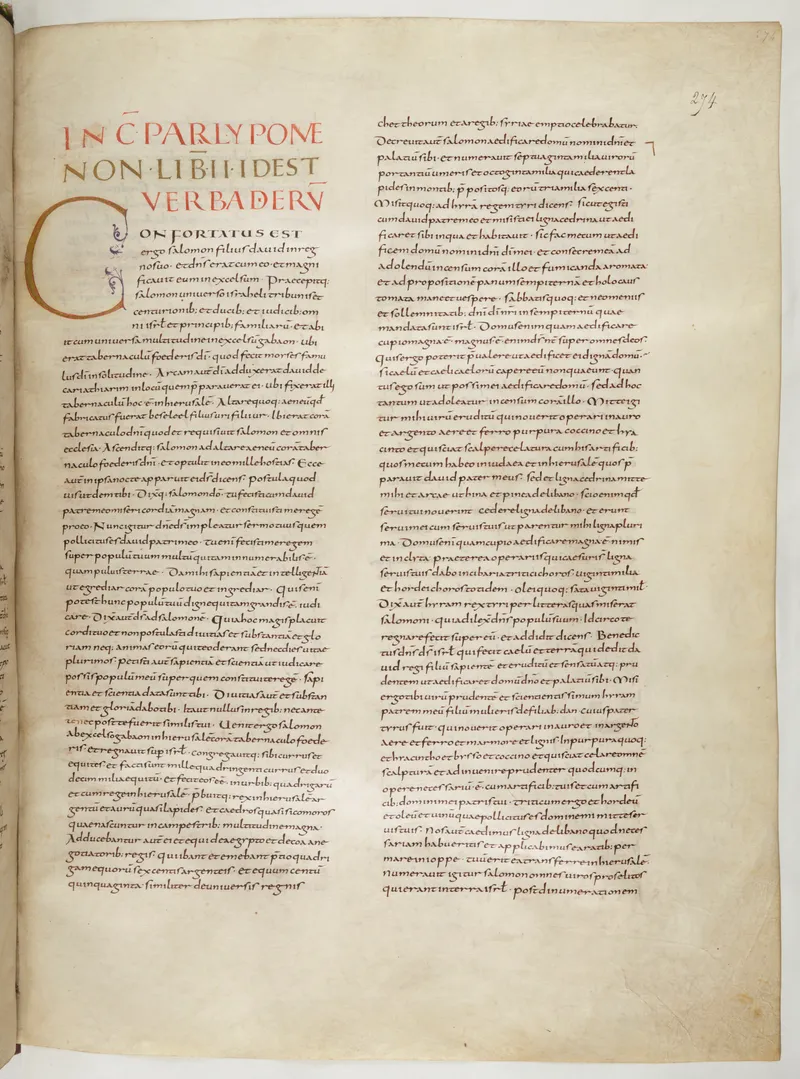 274
INC̅ PARLYPOME
NON·LIB·II·IDEST
VERBA DIERŪ
CONFORTATUS EST
ergo salomon filius dauid in reg
no suo· et dn̄s erat cum eo· et magni
ficauit eum in excelsum· Praecepitq;
salomon uniuerso israheli tribunis et
centurionib; et ducib; et iudicib; om
nis isrl̄ et principib; familiarū· et abi
it cum uniuersa multitudine in excelsū gabaon· ubi
erat tabernaculū foederis dī· quod fecit moyses famu
lus dī in solitudine· Arcam aut̄ dī adduxerat dauid de
cariathiarim in locū quem p̄parauerat ei· ubi fixerat illi
tabernaculū hoc ē in hierusalē· Altare quoq; aeneū qd̄
fabricatus fuerat beseleel filius uri filii ur· ibi erat corā
tabernaculo dn̄i quod et requisiuit salomon et omnis
ecclesia· Ascenditq; salomon ad altare aeneū corā taber
naculo foederis dn̄i· et optulit in eo mille hostias· Ecce
aut̄ in ipsa nocte apparuit ei ds̄ dicens· postula quod
uis ut dem tibi· Dixitq; salomon dō· tu fecisti cum dauid
patre meo misericordiā magnam· et constituisti me regē
pro eo· Nunc igitur dn̄e ds̄ impleatur sermo tuus quem
pollicitus es dauid patri meo· tu enī fecisti me regem
super populū tuum multū qui tam innumerabilis ē·
quam puluis terrae· Da mihi sapientiā et intellegentiā
ut egrediar corā populo tuo et ingrediar· Quis enī
potest hunc populū tuū digne qui tam grandis ē· iudi
care· Dixit aut̄ ds̄ ad salomonē· Quia hoc magis placuit
cordi tuo et non postulasti diuitias et substantiā et glo
riam neq; animas eorū qui te oderant sed nec dies uitae
plurimos· petisti aut̄ sapientiā et scientiā ut iudicare
possis populū meū super quem constitui te regē· sapi
entia et scientia data sunt tibi· Diuitias aut̄ et substan
tiam et gloriā dabo tibi· ita ut nullus in regib; nec ante
te nec post te fuerit similis tui· Uenit ergo salomon
ab excelso gabaon in hierusalē corā tabernaculo foede
ris et regnauit sup̄ isrl̄· congregauitq; sibi currus et
equites et facti sunt mille quadringenti currus et duo
decim milia equitū· et fecit eos eē in urbib; quadrigarū
et cum rege in hierusalē· p̄buitq; rex in hierusalē ar
gentū et aurū quasi lapides· et caedros quasi sicomoros
quae nascuntur in campestrib; multitudine magna·
Adducebantur aut̄ ei et equi de aegypto et de coa a ne
gotiatorib; regis· qui ibant et emebant p̄tio quadri
gam equorū sescentis argenteis· et equum centū
quinquaginta· similiter de uniuersis regnis
chettheorum et a regib; syriae emptio celebrabatur·
Decreuit aut̄ salomon aedificare domū nomini dn̄i et
palatiū sibi· et numerauit septuaginta milia uirorū
portantiū umeris et octoginta milia qui caederent la
pides in montib; p̄positosq; eorū tria milia sescenti·
Misit quoq; ad hyrā regem tyri dicens· sicut egisti
cum dauid patre meo et misisti ei ligna cedrina ut aedi
ficaret sibi in qua et habitauit· sic fac mecum ut aedi
ficem domū nomini dn̄i dī mei· et consecrem eā ad
adolendū incensum corā illo et fumicanda aromata
et ad propositionē panum sempiternā et holocaus
tomata mane et uespere· sabbatis quoq; et neomeniis
et sollemnitatib; dn̄i dī nr̄i in sempiternū quae
mandata sunt isrl̄· Domus enim quam aedificare
cupio magna ē· magnus ē enim ds̄ nr̄ super omnes deos·
Quis ergo poterit p̄ualere ut aedificet ei dignā domū·
si caelū et caeli caelorū capere eū nonqueunt· quan
tus ego sum ut possim ei aedificare domū· sed ad hoc
tantum ut adoleatur incensum corā illo· Mitte igi
tur mihi uirū eruditū qui nouerit operari in auro
et argento aere et ferro purpura coccino et hya
cinto et qui sciat scalpere celatura cum his artificib;
quos mecum habeo in iudaea et in hierusalē quos p̄
parauit dauid pater meus· sed et ligna cedrina mitte
mihi et arceutina et pinea de libano· scio enim qd̄
serui tui nouerint cedere ligna de libano· et erunt
serui mei cum seruis tuis ut parentur mihi ligna pluri
ma· Domus enī quam cupio aedificare magna ē nimis
et inclyta· praeterea operariis qui caesuri s̄ ligna
seruis tuis dabo in cibaria tritici choros uiginti milia
et hordei choros totidem· olei quoq; sata uiginti mil̄·
Dixit aut̄ hyram rex tyri per litteras quas miserat
salomoni· quia dilexit dn̄s populū suum· Idcirco te
regnare fecit super eū· et addidit dicens· Benedic
tus dn̄s ds̄ isrl̄ qui fecit caelū et terrā qui dedit da
uid regi filiū sapientē et eruditū et sensatū atq; pru
dentem ut aedificaret domū dn̄o et palatiū sibi· Misi
ergo tibi uirū prudentē et scientissimum hyram
patrem meū filiū mulieris de filiab; dan· cuius pater
tyrus fuit· qui nouerit operari in auro et in argento
aere et ferro et marmore et lignis· In purpura quoq;
et hyacintho et bysso et coccino et qui sciat celare omnē
scalpturā et adinuenire prudenter quodcumq; in
opere necessariū ē· cum artificib; tuis et cum artifi
cib; domini mei patris tui· triticum ergo et hordeū
et oleū et uinum quae pollicitus es domine mi mitte ser
uis tuis· Nos aut̄ caedimus ligna de libano quod neces
sariam habueritis et applicabimus ea ratib; per
mare in ioppe· tuū erit ea transferre in hierusalē·
Numerauit igitur salomon omnes uiros proselitos
qui erant in terra isrl̄· post dinumerationem